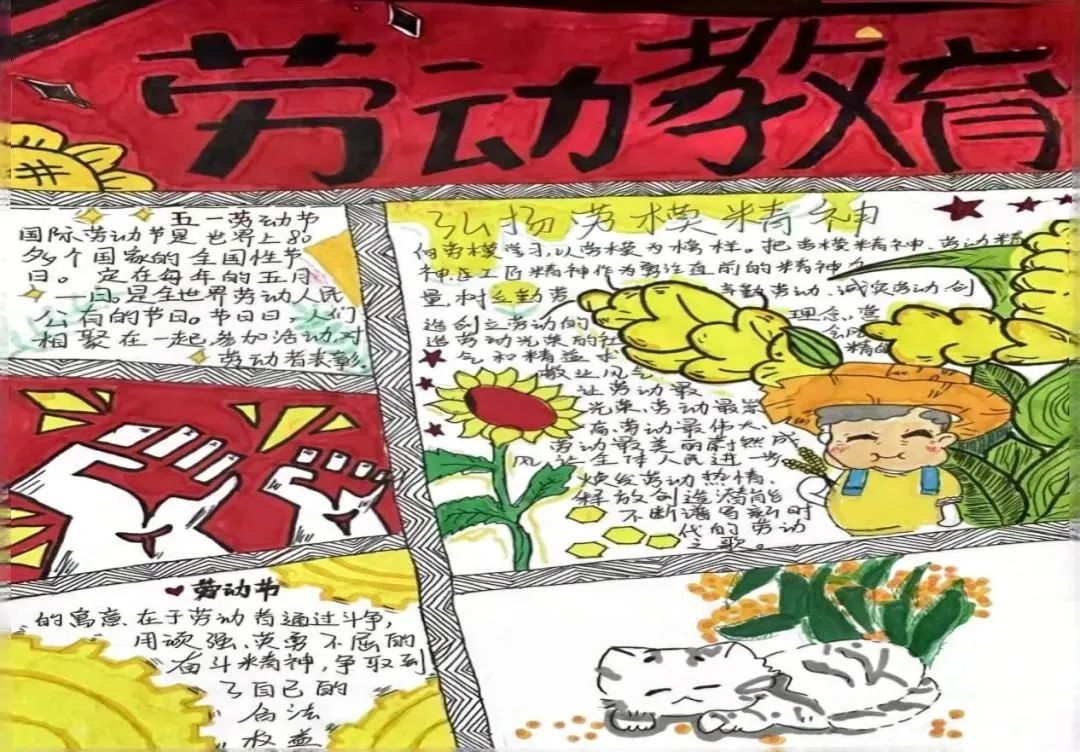 劳动教育
五一劳动节
国际劳动节是世界上80
多个国家的全国性节
日。定在每年的五月
一日。是全世界劳动人民
公有的节日。节日日,人们
相聚在一起,参加活动,对
劳动者表彰。
弘扬劳模精神
向劳模学习,以劳模为榜样。把劳模精神、劳动精
神、工匠精神作为勇往直前的精神力
量,树立勤劳 辛勤劳动、诚实劳动创
造创立劳动的 理念,营
造劳动光荣的社 会风
气和精益求 精的
敬业风气
让劳动最
光荣、劳动最崇
高、劳动最伟大、
劳动最美丽蔚然成
风,全体人民进一步
焕发劳动热情、
释放创造潜能
不断谱写新时
代的劳动
之歌。
劳动节
的寓意在于劳动者通过斗争,
用顽强、英勇不屈的
奋斗精神,争取到
了自己的
合法
权益